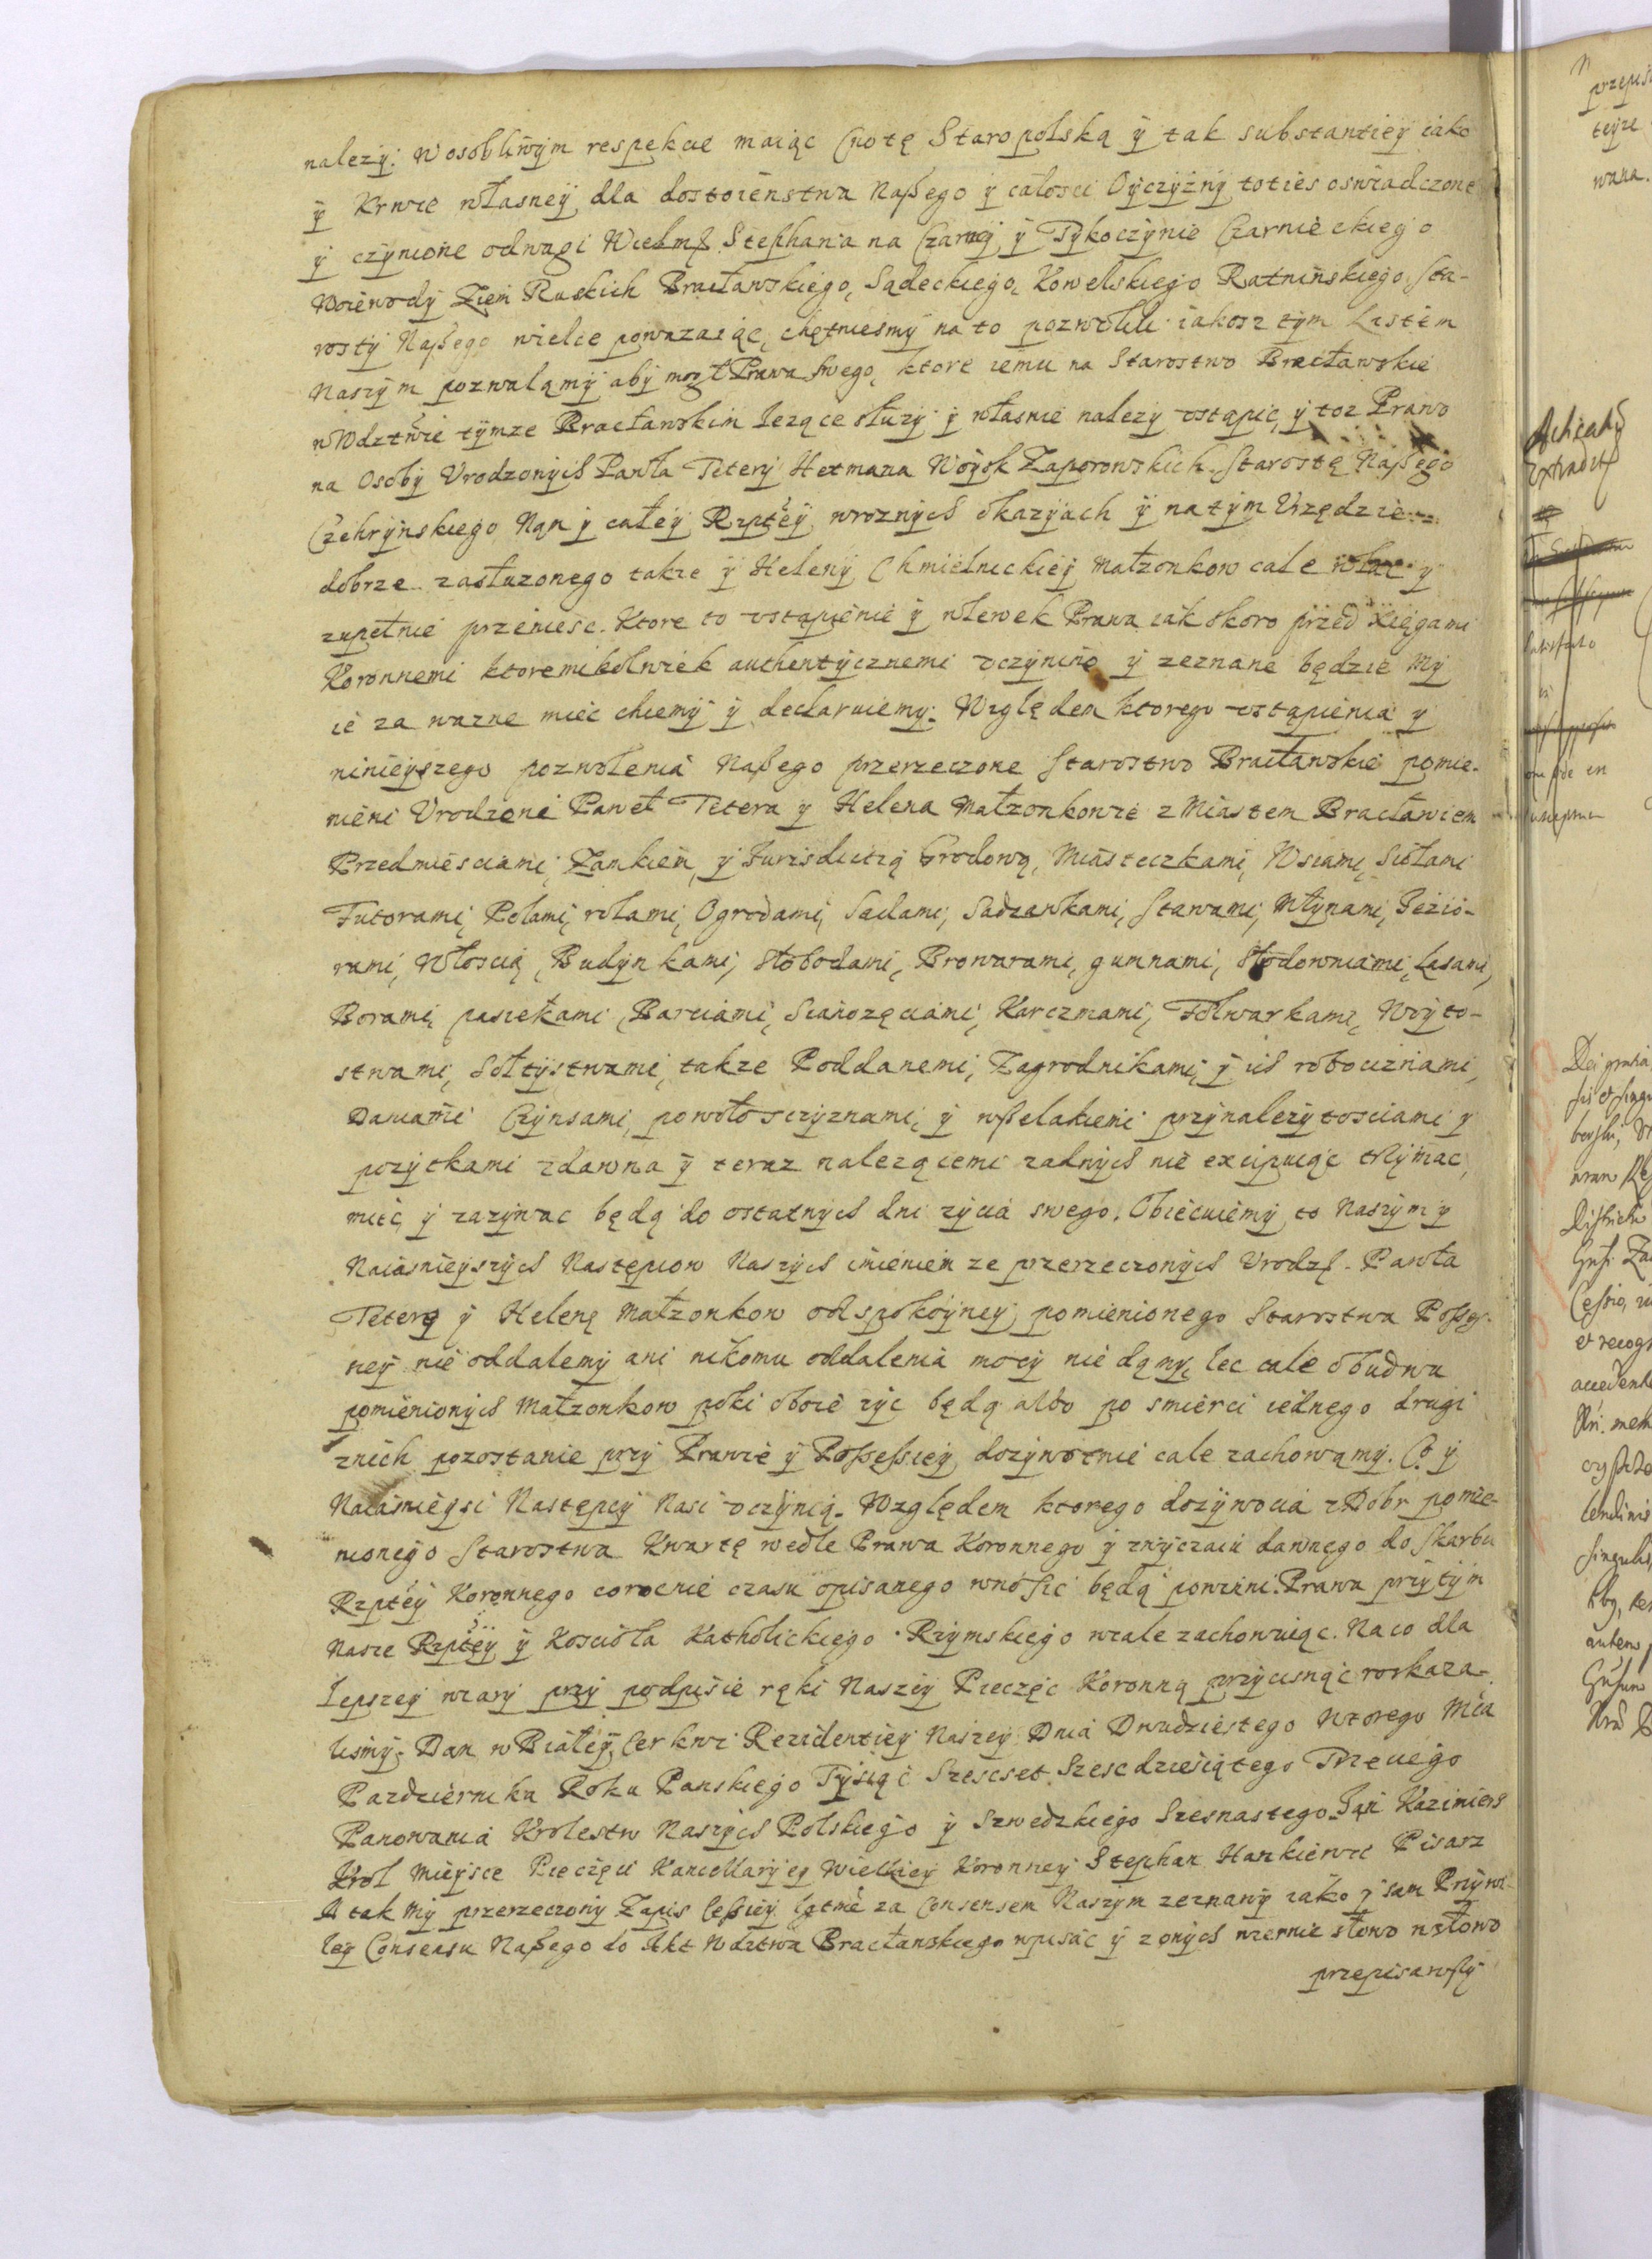 należy. W osobliwym respekcie maiąc Cnotę Staropolską ÿ tak substantiey iako
ÿ Krwie własneÿ dla dostoienstwa Naßego ÿ całosci Oÿczÿznÿ toties oswiadczone
ÿ czÿnione odwagi Wielmſ Stephana na Czarneÿ ÿ Tÿkoczÿnie Czarnieckiego
Woiewodÿ Ziem Ruskich Bracławskiego, Sądeckiego, Kowelskiego Ratninskiego, Sta-
rostÿ Naßego wielce powazaiąc, chętniesmÿ na to pozwolili iakosz tÿm Listem
Naszÿm pozwaląmÿ abÿ mogł Prawa swego, ktore iemu na Starostwo Bracławskie
w Wdztwie tÿmze Bracławskim lezące słuzÿ ÿ własnie nalezÿ ustąpic, ÿ toz Prawo
na Osobÿ Vrodzonÿch Pawła Teterÿ Hetmana Woÿsk Zaporowskich Starostę Naßego
Czehrÿnskiego Nąm ÿ całeÿ Rzpteÿ wroznÿch okazÿach ÿ na tÿm Urzędzie
dobrze zasłuzonego takze ÿ Helenÿ Chmielnickieÿ Małzonkow cale wlac ÿ
zupełnie przeniesc. Ktore to ustąpienie ÿ wlewek Prawa iak skoro przed Xięgami
Koronnemi ktoremikolwiek authentÿcznemi uczÿnino ÿ zeznane będzie Mÿ
ie za wazne miec chcemÿ ÿ declaruiemÿ. Względem ktorego ustąpienia ÿ
ninieÿszego pozwolenia Naßego przerzeczone Starostwo Bracławskie pomie-
nieni Vrodzoni Paweł Tetera ÿ Helena Małzonkowie z Miastem Bracławiem
Przedmiesciami, Zamkiem, ÿ Jurisdictią Grodową, Miasteczkami, Wsiami, Siołami
Futorami, Polami, rolami, Ogrodami, Sadami, Sadzawkami, Stawami, Młÿnami, Jezio-
rami, Włoscią, Budÿnkami, Słobodami, Browarami, gumnami, Słodowniami, Lasami,
Borami, pasiekami, Barciami, Sianozęciami, Karczmami, Folwarkami, Woÿto-
stwami, Sołtÿstwami, takze Poddanemi, Zagrodnikami, ÿ ich robociznami,
Daniami Czÿnsami, powołosczÿznami, ÿ wßelakiemi przÿnalezÿtosciami ÿ
pozÿtkami zdawna ÿ teraz nalezącemi zadnÿch nie excipuiąc trzÿmac,
miec, ÿ zazÿwac będą do ostatnÿch dni zÿcia swego. Obiecuiemÿ to Naszÿm ÿ
Naiasnieÿszÿch Następcow Naszÿch imieniem ze przerzeczonÿch Vrodzſ. Pawła
Teterę ÿ Helenę Małzonkow od spokoÿneÿ pomienionego Starostwa Possess-
neÿ nie oddalemÿ ani nikomu oddalenia mocÿ nie dąmÿ, lec cale obudwu
pomienionÿch Małzonkow poki oboie zÿc będą albo po smierci iednego drugi
znich pozostanie przÿ Prawie ÿ Possessieÿ dozÿwotnie cale zachowąmÿ. Co ÿ
Naiasnieÿsi Następcÿ Nasi uczÿnią. Względem ktorego dozÿwocia z Dobr pomie-
nionego Starostwa Kwartę wedle Prawa Koronnego ÿ zwÿczaiu dawnego do Skarbu
Rzpteÿ Koronnego corocnie czasu opisanego wnosic będą powinni. Prawa przÿ tÿm
Nasze Rzpteÿ ÿ Kosciola Katholickiego Rzÿmskiego wcale zachowuiąc. Na co dla
lepszeÿ wiarÿ przÿ podpisie ręki Naszeÿ Pieczęc Koronną przÿcisnąc roskaza-
lismÿ. Dan w Białeÿ Cerkwi Rezidentieÿ Naszeÿ Dnia Dwudziestego Wtorego Mca
Pazdziernika Roku Panskiego Tÿsiąc Szescset Szescdziesiątego Trzeciego
Panowania Krolestw Naszÿch Polskiego ÿ Szwedzkiego Szesnastego. Jąn Kazimierz
Krol Mieÿsce Pieczęci Kancellarÿeÿ Wielkieÿ Koronneÿ Stephan Hankiewic Pisarz
A tak Mÿ przerzeczonÿ Zapis Cessieÿ za Consensem Naszÿm zeznanÿ iako ÿ sam Przÿwi-
leÿ Consensu Naßego do Akt Wdztwa Bracławskiego wpisac ÿ z onÿch wiernie słowo w słowo
przepisawszÿ